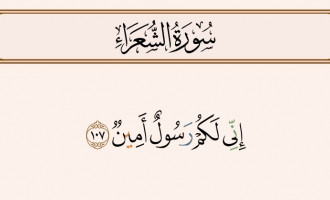 سُورَةُ الشُّعَرَاءِ
إِنِّي لَكُمْ رَسُولٌ أَمِينٌ ١٠٧